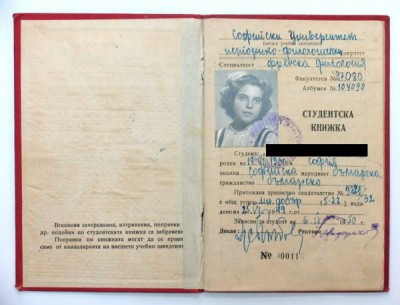 Всякакви зачерквания, изтривания, поправки
др. подобни по студентската книжка са забранени
Поправки по книжката могат да се правят
само от канцеларията на висшето учебно заведение
Софийски Университет
историко-филологически факултет
Специалност френска филология
Факултетен № 27080
Албумен № 104090
СТУДЕНТСКА
КНИЖКА
Студент
роден на София
околия Софийска народност българска
гражданство българско
Притежава зрелостно свидетелство №
с общ успех мн. добър 5.22
Записан за студент на
Декан: Ректор:
№ 0011